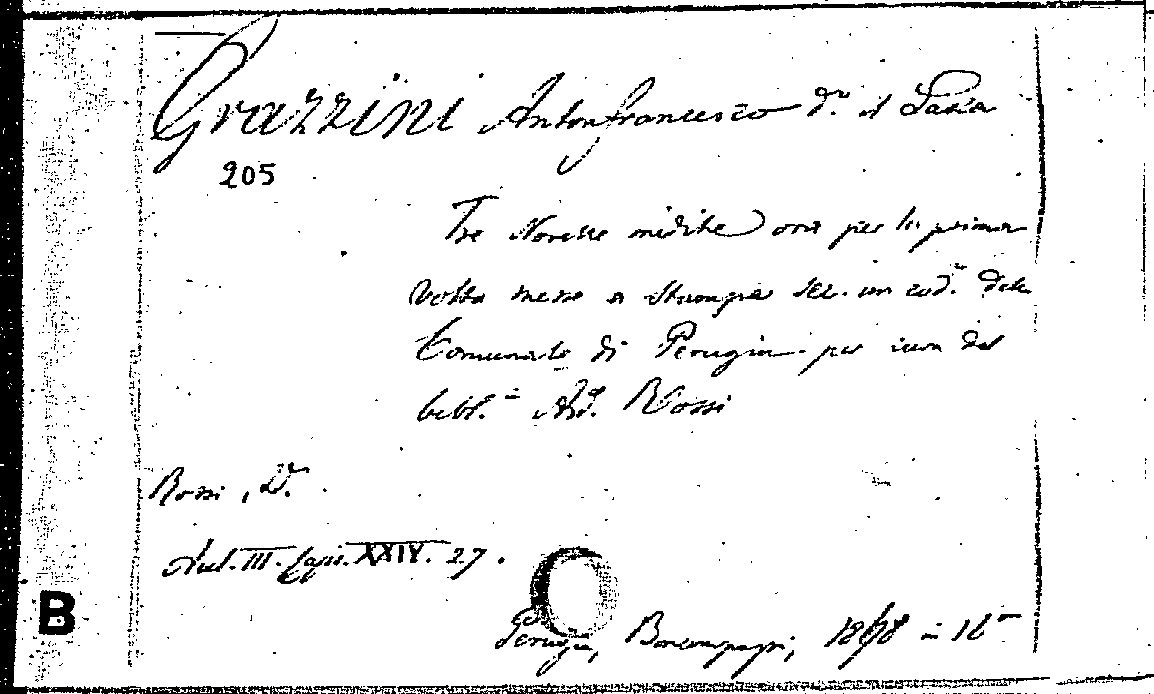 Grazzini Antonfrancesco d.º il Lasca
205
Tre Novelle inedite ora per la prima
volta messe a stampa sec. un cod.º della
Comunale di Perugia per cura del
bibl.º Ad. Rossi
Rossi, Ad.
Aul. III. Caps. XXIV. 27.
Perugia, Boncompagni, 1868 in 16º
B